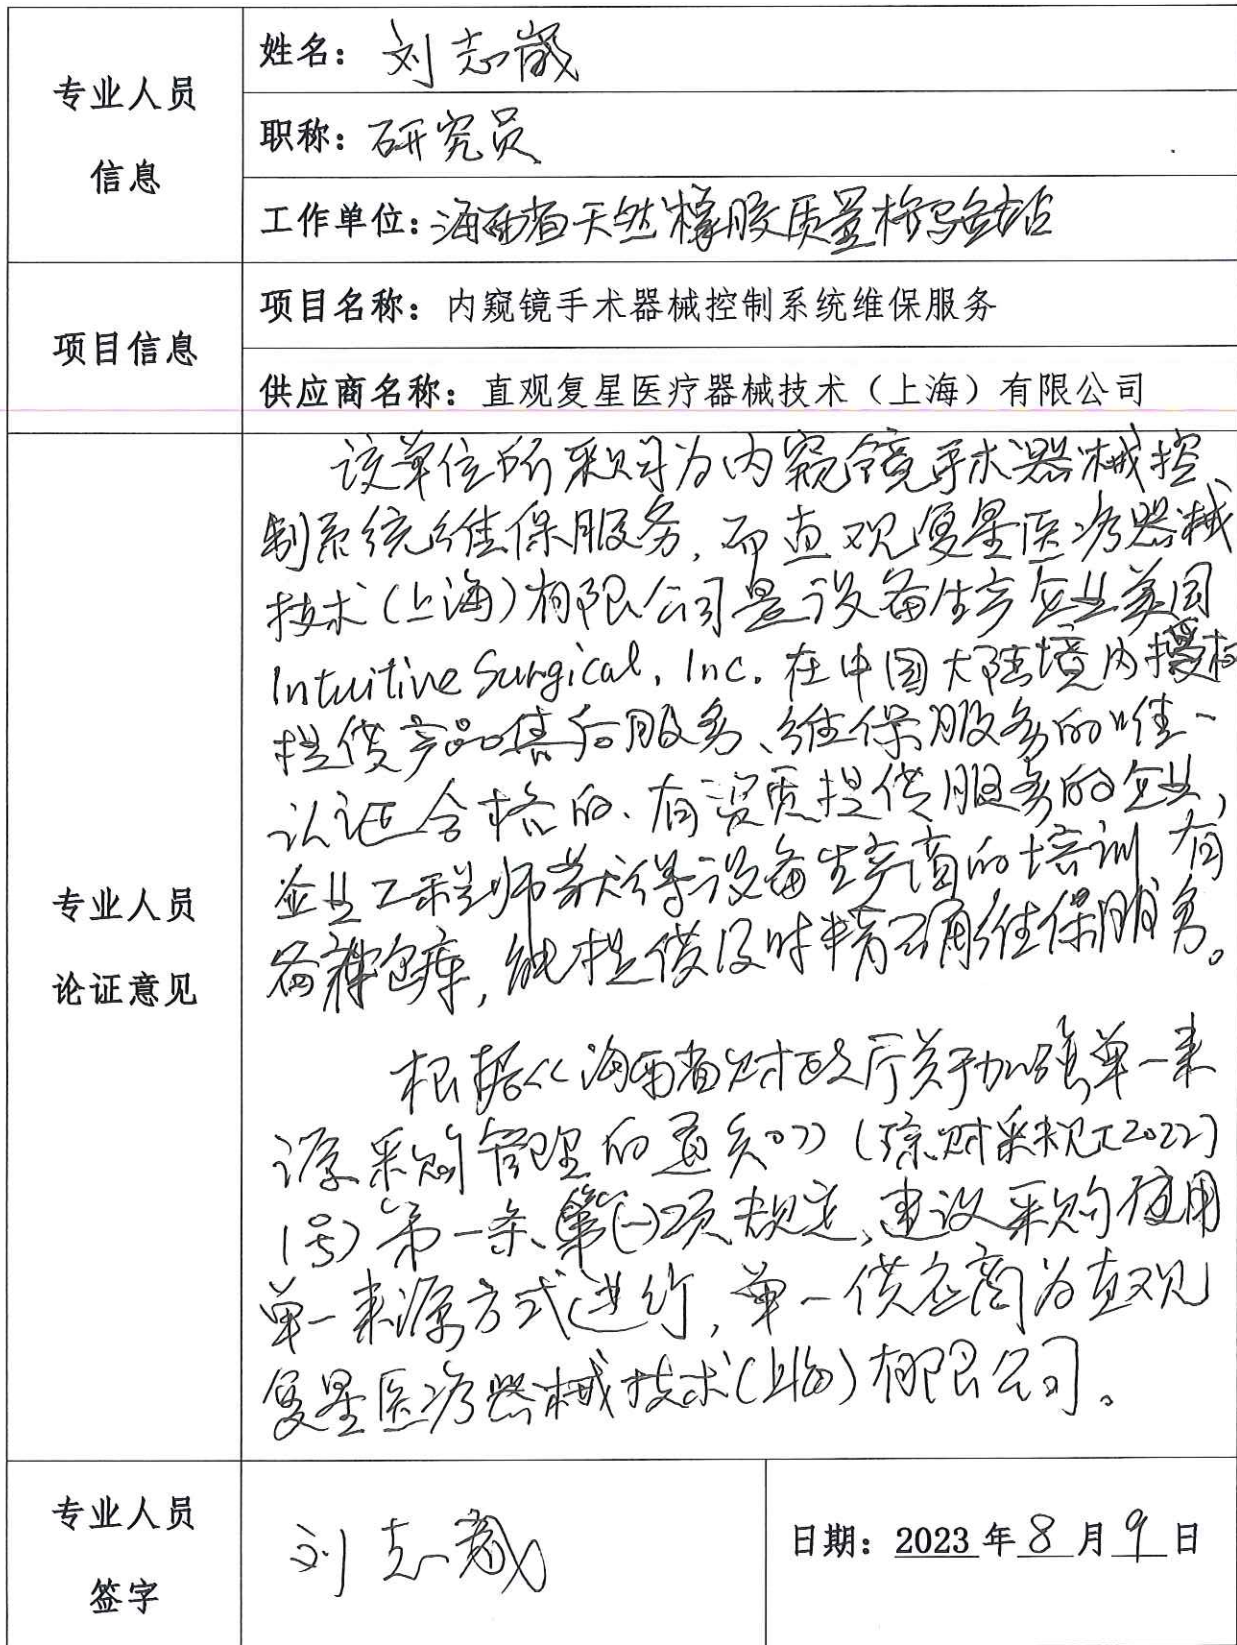 专业人员
信息
姓名：刘志崴
职称：研究员
工作单位：海南省天然橡胶质量检验站
项目信息
项目名称：内窥镜手术器械控制系统维保服务
供应商名称：直观复星医疗器械技术（上海）有限公司
专业人员
论证意见
该单位所采购为内窥镜手术器械控
制系统维保服务，而直观复星医疗器械
技术(上海)有限公司是设备生产企业美国
Intuitive Surgical, Inc. 在中国大陆境内授权
提供产品售后服务、维保服务的唯一
认证合格的、有资质提供服务的企业，
企业工程师获得设备生产商的培训，有
备件仓库，能提供及时精准维保服务。
根据《海南省财政厅关于加强单一来
源采购管理的通知》(琼财采规[2022]
1号)第一条、第(一)项规定，建议采购使用
单一来源方式进行，单一供应商为直观
复星医疗器械技术(上海)有限公司。
专业人员
签字
刘志崴
日期：2023年8月9日